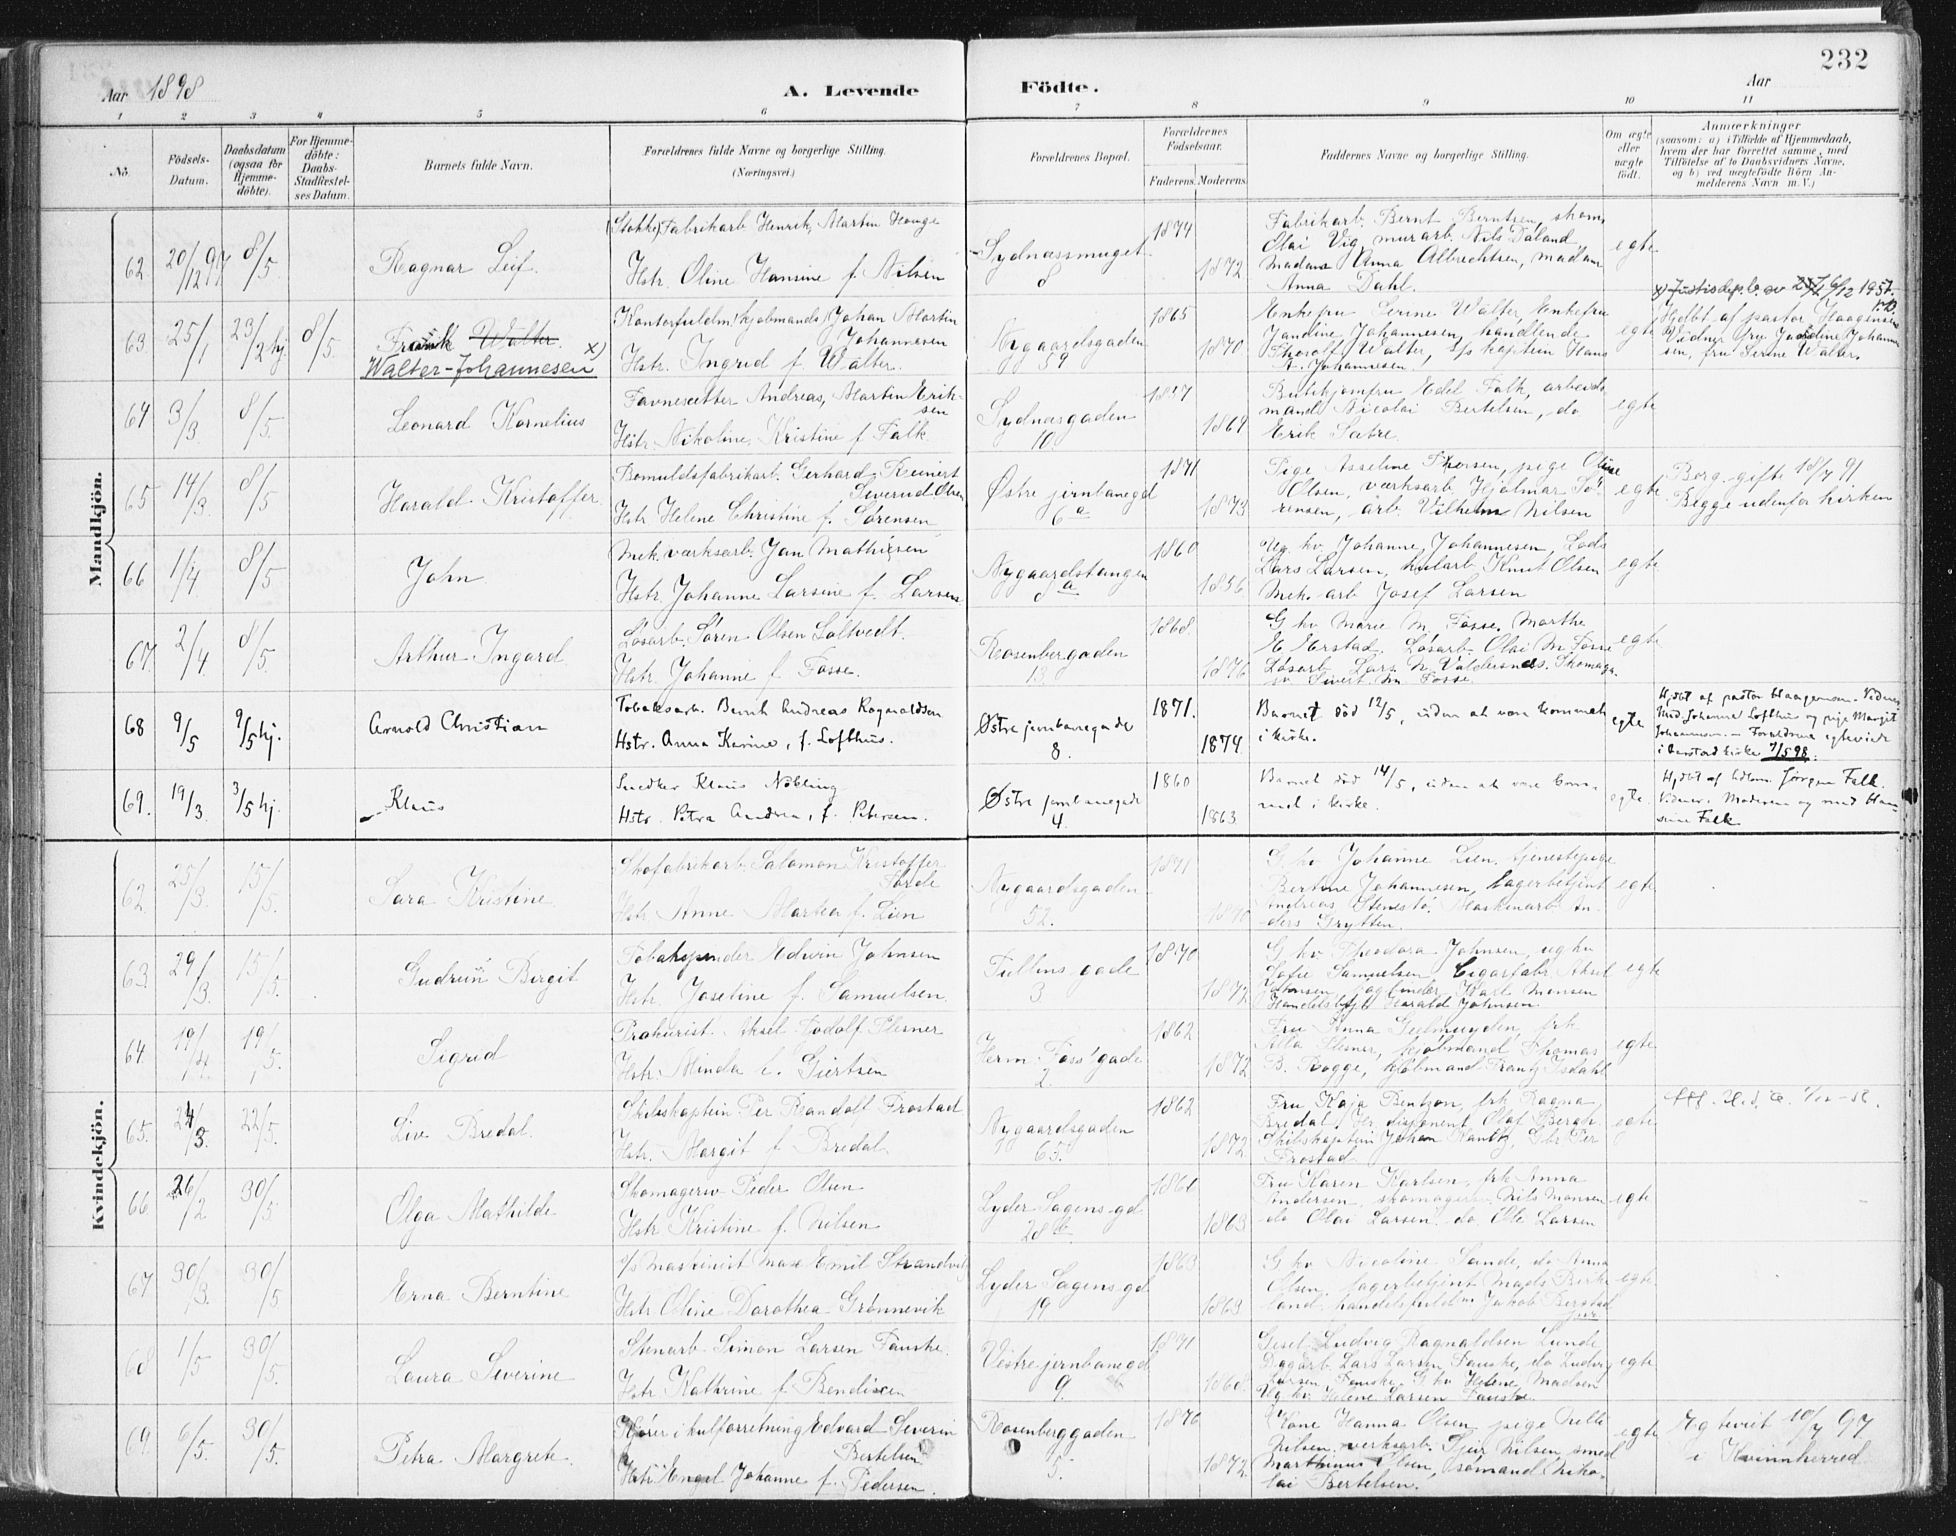 232
Aar 1898
A. Levende Födte.
Aar
1 2 3 4 5 6 7 8 9 10 11
No.
Födsels-Datum.
Daabsdatum (ogsaa för Hjemme-döbte).
For Hjemme-döbte: Daabs-Stadfæstel-ses Datum.
Barnets fulde Navn.
Forældrenes fulde Navne og borgerlige Stilling. (Næringsvei.)
Forældrenes Bopæl.
Forældrenes Födselsaar.
Faderens. Moderens.
Faddernes Navne og borgerlige Stilling.
Om ægte eller uægte födt.
Anmærkninger
(saasom: a) i Tilfælde af Hjemmedaab, hvem der har forrettet samme, med Tilföielse af to Daabsvidners Navne, og b) ved uægtefödte Börn An-melderens Navn m. V.)
Mandkjön.
62. 20/12 97 8/5 Ragnar Leif.
(Stokke) Fabrikarb Henrik, Martin Hauge
Hstr. Oline Hansine f. Nilsen
Sydnæssmuget 8
1874 1872
Fabrikarb. Bernt Berntsen, skom.
Olai Vig, murarb. Nils Daland.
Madam Anna Albrechtsen, madam
Anna Dahl.
egte
63 25/1 23/2 hj 8/5 Frank Walter x)
Walter-Johannesen
Kontorfuldm. (kjøbmands) Johan Martin
Johannesen
Hstr. Ingrid f. Walter.
Nygaardsgaden 59
1865 1870
Enkefru Serine Walter, Enkefru
Jandine Johannesen, handlende
Thorolf Walter, s/s kaptein Hans
A. Johannesen.
egte
x) Justisdep. b. av 6/12 1957.
Hjdbt af pastor Haagensen
Vidner fru Jandine Johanne-
sen, fru Serine Walter.
64 3/3 8/5 Leonard Kornelius
Favnesætter Andreas, Martin Erik-
sen
Hstr. Nikoline, Kristine f. Falk.
Sydnæsgaden 10.
1857 1861
Butikjomfru Edel Falk, arbeids
mand Nicolai Bertelsen, do
Erik Sætre.
egte
65 14/3. 8/5 Harald Kristoffer
Bomuldsfabrikarb. Gerhard Reinert
Severud Olsen
Hstr Helene Christine f. Sørensen
Østre jernbanegd 6 a
1871 1873
Olsen, værksarb. Hjalmar Sö-
rensen, arb. Vilhelm Nilsen
egte
Borg. gifte 18/7 91
Begge udenfor kirken
66 1/4 8/5 John
Mek. værksarb. Jan Mathiesen
Hstr. Johanne Larsine f. Larsen
Nygaardstangen 8 a
1860 1856
Ug. kv Johanne Johannesen, Lods
Lars Larsen, kularb Knut Olsen
Mek. arb Josef Larsen
egte
67 2/4 8/5 Arthur Ingard
Løsarb. Søren Olsen Loltvedt.
Hstr. Johanne f. Fosse.
Rosenbergaden 13.
1868. 1876
G kv Marie M. Fosse, Marthe
E Erstad. Løsarb. Olai M Fosse
Løsarb Lars N. Valdersnes. Skomager
sv Sivert M Fosse.
egte
68 9/5 9/5 hj. Arnold Christian
Tobaksarb. Bernt Andreas Ragnaldsen
Hstr. Anna Karine, f. Lofthus.
Østre jernbanegade 8.
1871. 1874.
Barnet död 12/5, uden at være kommet
i kirke.
egte
Hjdbt af pastor Haagensen. Vidner
Mad. Johanne Lofthus og pige Margit
Johannesen. — Forældrene egteviede
i Aarstad kirke 7/5 98.
69. 19/3 3/5 hj. Klaus
Snedker Klaus Nöbling
Hstr. Petra Andrea, f. Petersen.
Østre jernbanegade 4.
1860 1863
Barnet död 14/5, uden at være kom-
met i kirke.
egte.
Hjdbt af Jörgen Falk.
Vidner. Moderen og mad Han-
sine Falk
Kvindekjön.
62. 25/3. 15/5. Sara Kristine
Skofabrikarb Salomon Kristoffer
Førde
Hstr Anne Martea f. Lien
Nygaardsgaden 52.
1871 1870
G kv Johanne Lien. tjenestepige
Bertine Johannesen, lagerbetjent
Andreas Stenestö. Maskinarb An-
ders Grytten.
egte
63. 29/3 15/5. Gudrun Birgit
Tobakspinder Edvin Johnsen
Hstr. Josefine f. Samuelsen.
Tullins gade 3
1870 1872
G kv Theodora Johnsen, ug kv
Sofie Samuelsen, Cigarfabr. Aksel
Johnsen, bogbinder Karl Monsen
Handelsbetj. Harald Johnsen.
egte
64 19/4 19/5. Sigrid
Prokurist. Aksel Jodolf Plesner
Hstr. Minda f. Giertsen
Herm. Foss' gade 2.
1862 1872
Fru Anna Gulmuyden, frk
Plesner, kjøbmand Thomas
B. Bøgge, kjøbmand Frantz Isdahl
egte
65. 24/3. 22/5. Live Bredal.
Skibskaptein Per Randolf Frostad
Hstr. Margit f. Bredal.
Nygaardsgaden 65.
1862 1872
Fru Kaja Bentzon, frk Ragna
Bredal, Hr. disponent Olaf Bergh.
Skibskaptein Johan Hantz, Gbr Per
Frostad
egte
66 26/2 30/5. Olga Mathilde
Skomagersv Peder Olsen
Hstr Kristine f. Nilsen
Lyder Sagens gd 28 b
1861 1863
Fru Karen Karlsen, frk Anna
Andersen, skomagersv. Nils Monsen
do Olai Larsen. do Ole Larsen
egte
67 30/3. 30/5 Erna Berntine
s/s Maskinist Max Emil Strandvik
Hstr Oline Dorothea Grønnevik
Lyder Sagens gd 19
1863 1863
G kv Nicoline Sande, do Anna
Olsen. lagerbetjent Mads Birke-
land. handelsfuldm Jakob Berstad
jun
egte
68 1/5 30/5. Laura Severine
Stenarb Simon Larsen Fauske.
Hstr Kathrine f. Bendixen
Vestre jernbanegd 9.
1871 1868.
Gesel Ludvig Ragnaldsen Lunde
Dagarb. Lars Larsen Fauske, do Ludvig
Larsen Fauske G kv Helene Madsen
Ug kv Helene Larsen Fauske
egte
69 6/5. 30/5. Petra Margrete.
Kjører i kulforretning Edvard Severin
Bertelsen
Hstr Engel Johanne f. Pedersen.
Rosenberggaden 5.
1876 1872.
Kone Hanna Olsen pige Nille
Nilsen, verksarb. Sjur Nilsen, smed
Marthinus Olsen, sømand Niko-
lai Bertelsen.
egte
Egteviet 10/7 97
i Kvinnherred